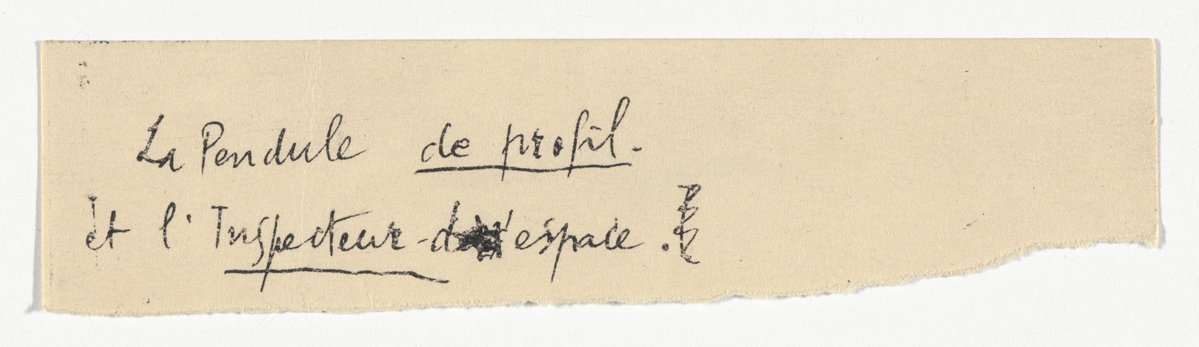 La Pendule de profil.
et l'Inspecteur d'espace.